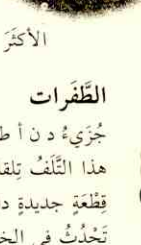 الأكثَرَ
الطَّفَرات
جُزَيءُ د ن أ ط
هذا التَّلَفُ تِلقا
قِطْعَةٍ جديدةٍ د
تَحْدُثُ في الخ